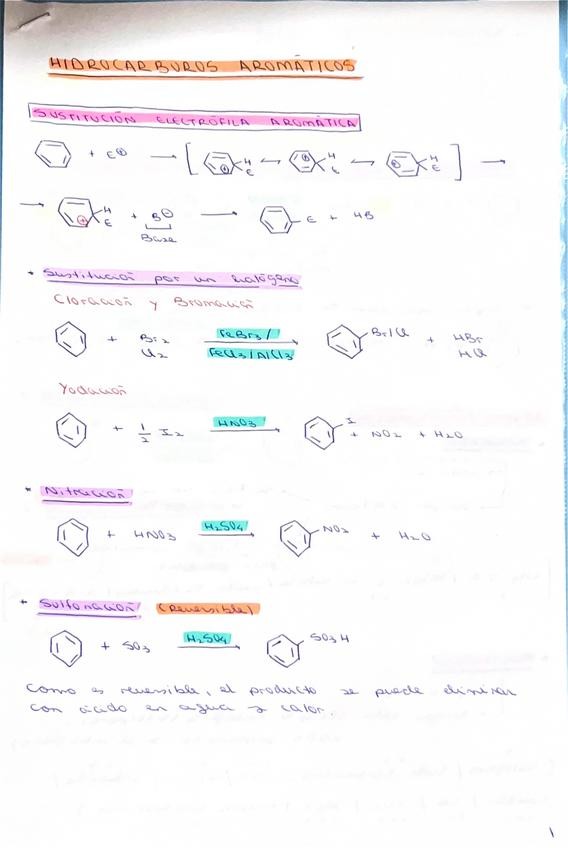 HIDROCARBUROS AROMÁTICOS
SUSTITUCIÓN ELECTRÓFILA AROMÁTICA
+ E⊕ → [ ⊕ H E ↔ ⊕ H E ↔ ⊕ H E ] →
→ + H E + B⊖ → E + HB
Base
* Sustitución por un halógeno
Cloración y Bromación
+ Br2 FeBr3/ Br/Cl + HBr
Cl2 FeCl3/AlCl3 HCl
Yodación
+ 1/2 I2 HNO3 → I + NO2 + H2O
* Nitración
+ HNO3 H2SO4 → NO2 + H2O
* Sulfonación (Reversible)
+ SO3 H2SO4 → SO3H
Como es reversible, el producto se puede eliminar
con ácido en agua y calor.
1